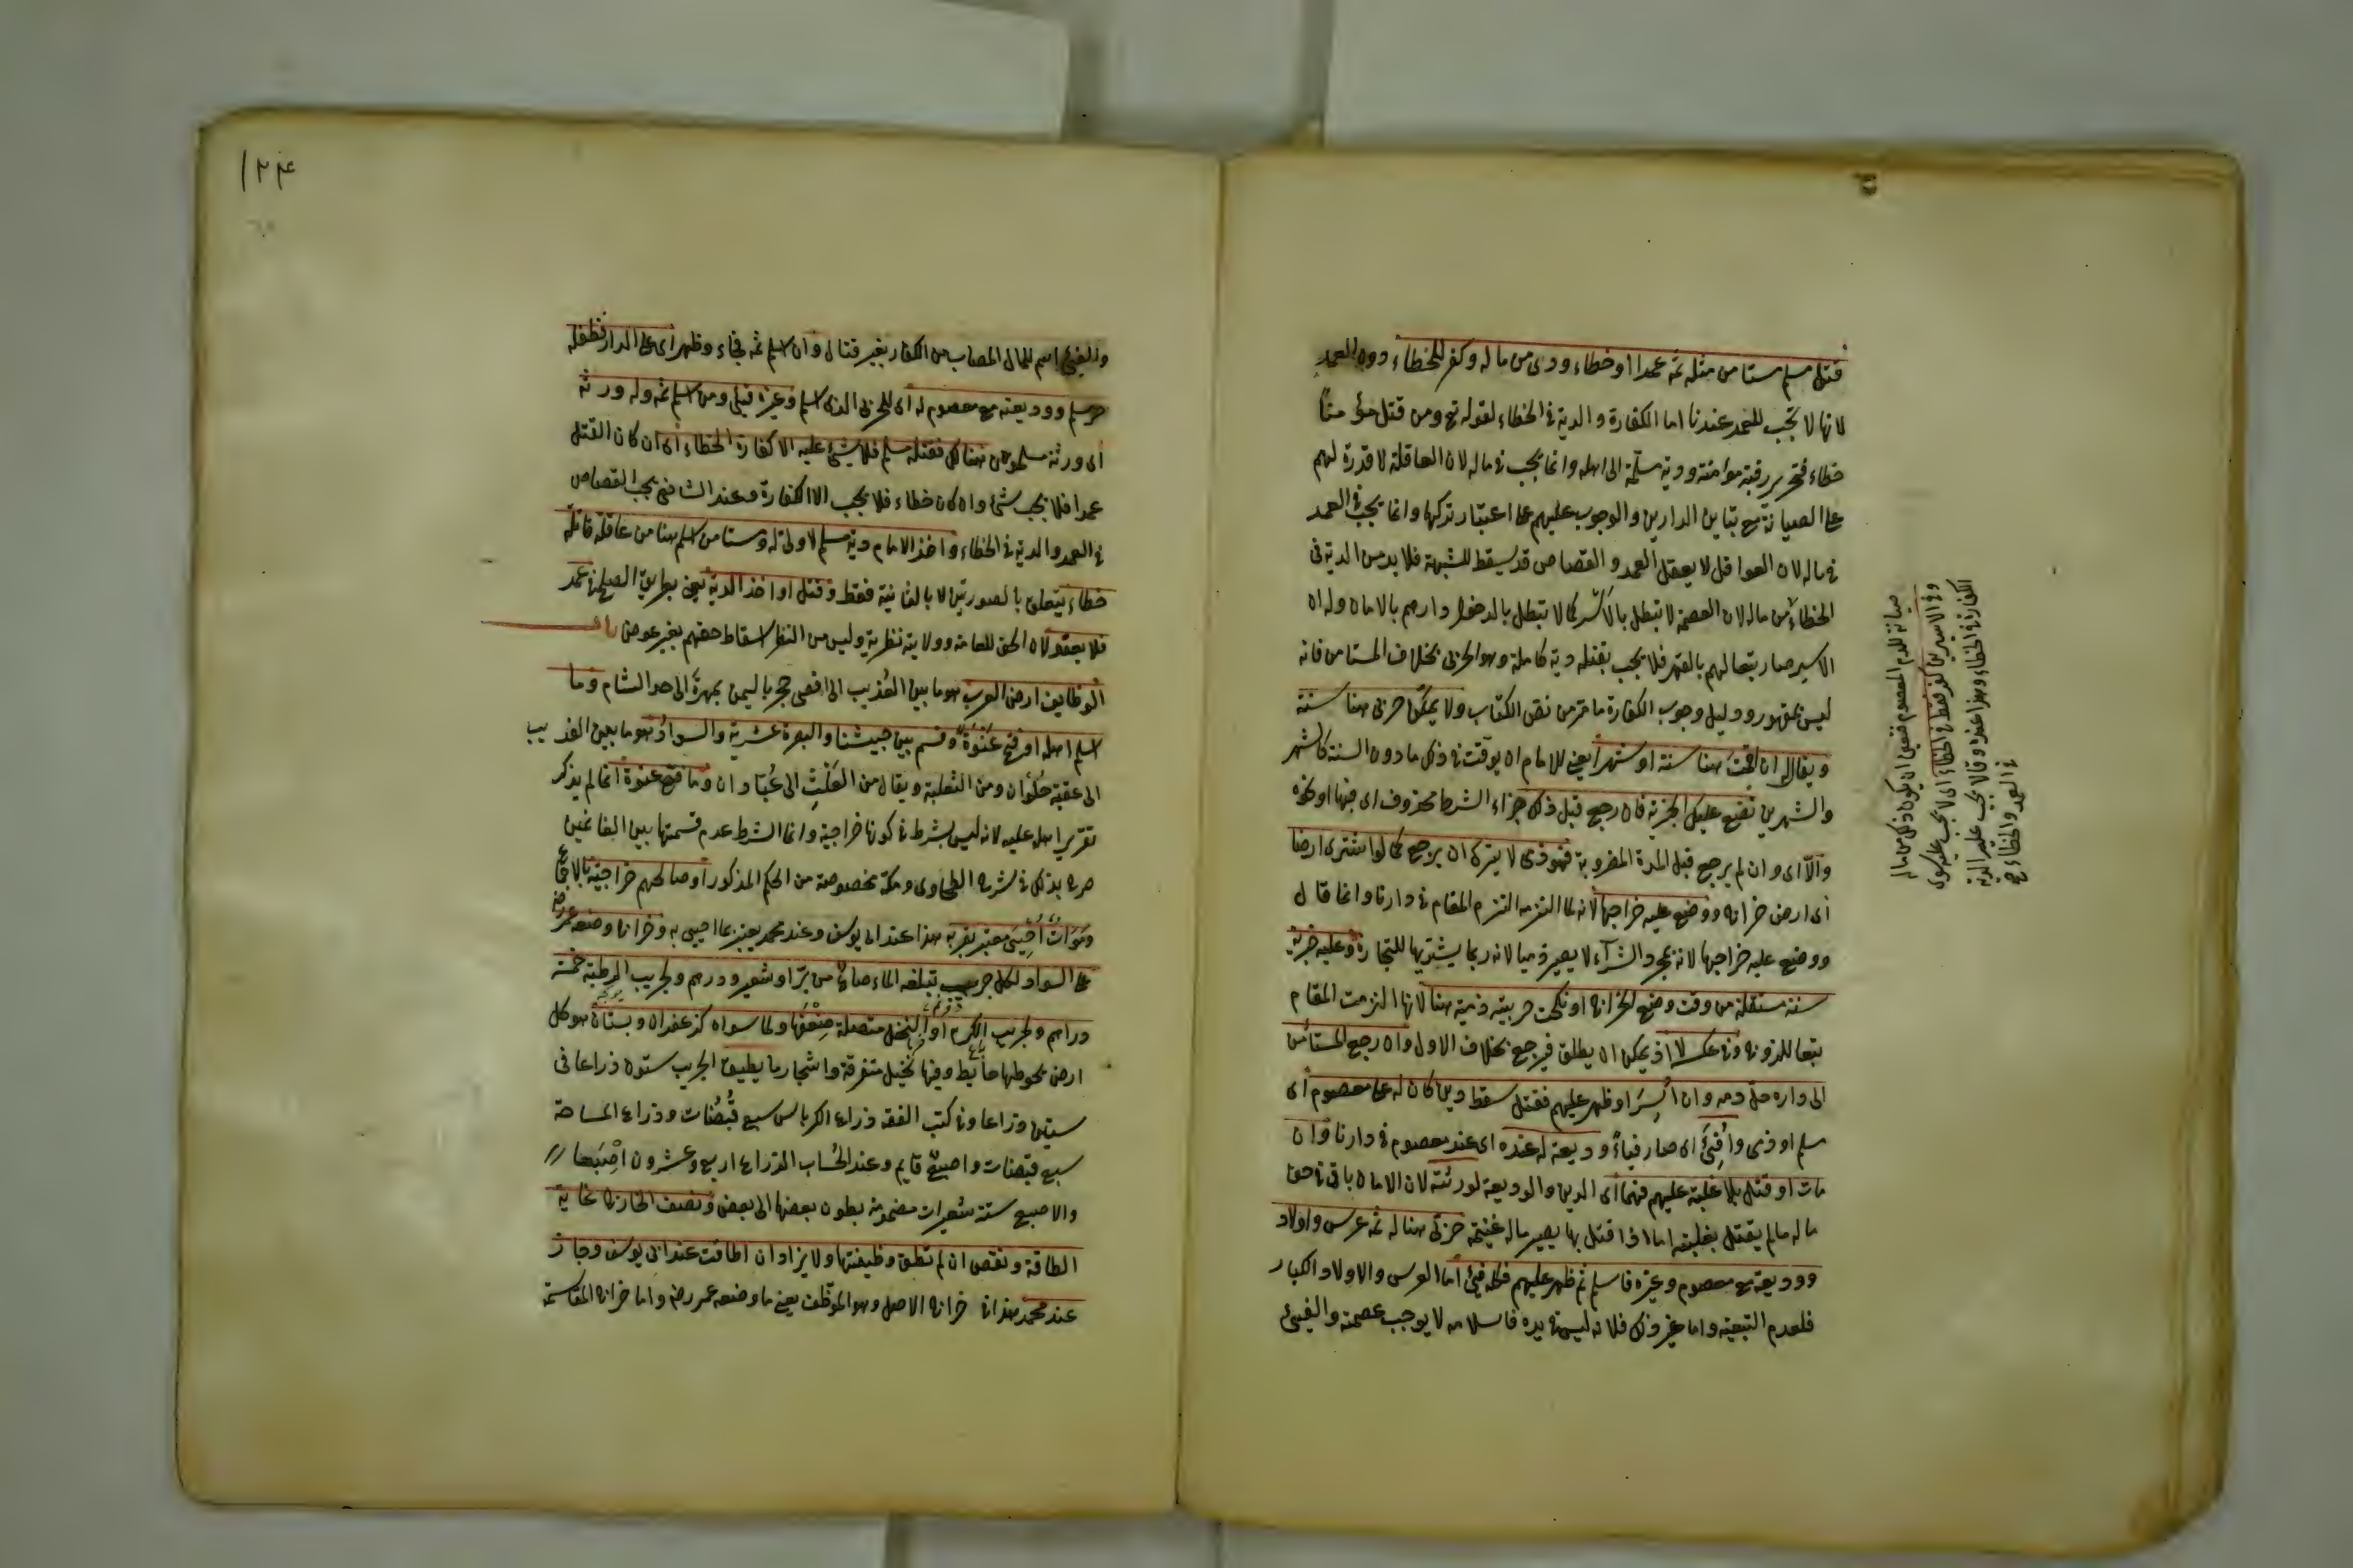 قتل مسلم مستامن مثله ثمه عمدا او خطاء ودى من ماله وكفر للخطاء دون العمد
لانها لا تجب للعمد عندنا اما الكفارة والدية فى الخطاء لقوله تع ومن قتل مؤمنا
خطاء فتحرير رقبة مؤمنة ودية مسلمة الى اهله وانما يجب فى ماله لان العاقلة لا قدرة لهم
على الصيانة مع تباين الدارين والوجوب عليهم على اعتبار تركها وانما يجب فى العمد
فى ماله لان العواقل لا يعقل العمد والقصاص قد يسقط للشبهة فلا بد من الدية فى
الخطاء من ماله لان العصمة لا تبطل بالاسر كما لا تبطل بالدخول دارهم بالامان وله ان
الاسير صار تبعا لهم بالقهر فلا يجب بقتله دية كاملة وهو الحربى بخلاف المستامن فانه
ليس بمقهور ودليل وجوب الكفارة ما مر من نص الكتاب ولا يمكن حربى هنا سنة
ويقال له ان اقمت هنا سنة او شهرا يعنى للامام ان يوقت فى ذلك ما دون السنة كالشهر
والشهرين نضع عليك الجزية فان رجع قبل ذلك جزاء الشرط محذوف اى فبها او نحوه
والا اى وان لم يرجع قبل المدة المضروبة فهو ذمى لا يترك ان يرجع كما لو اشترى ارضا
اى ارض خراج ووضع عليه خراجها لانه لما التزمه التزم المقام فى دارنا وانما قال
ووضع عليه خراجها لانه بمجرد الشرآء لا يصير ذميا لانه ربما يشتريها للتجارة وعليه جزية
سنة مستقلة من وقت وضع الخراج او نكحت حربية ذمية هنا لانها التزمت المقام
تبعا للزوج وفى عكسه لا اذ يمكن ان يطلق فيرجع بخلاف الاول وان رجع المستأمن
الى داره حل دمه وان اُسِرَ او ظهر عليهم فقتل سقط دين كان له على معصوم اى
مسلم او ذمى واُفِئَ اى صار فيأً وديعة له عنده اى عند معصوم فى دارنا وان
مات او قتل بلا غلبة عليهم فهما اى الدين والوديعة لورثته لان الامان باق فى حق
ماله ما لم يقتل بغلبته اما اذا قتل بها يصير ماله غنيمة حربى هنا له ثمه عرس واولاد
ووديعة مع معصوم وغيره فاسلم ثم ظهر عليهم فكله فيئ اما العرس والاولاد الكبار
فلعدم التبعية واما غير ذلك فلانه ليس فى يده فاسلامه لا يوجب عصمته والفيئ
صيانة للدم المعصوم فينبغى ان يكون ذلك من مال
وفى الاسيرين كفر فقط فى الخطاء اى لا يجب عليه سوى
الكفارة فى الخطاء وهذا عنده وقالا يجب عليه الدية
فى العمد والخطاء ح
١٢٤
والفيئ اسم للمال المصاب من الكفار بغير قتال وان اسلم ثمه فجاء وظهر اى على الدار فطفله
حر مسلم ووديعته مع معصوم له اى للحربى الذى اسلم وغيره فيئ ومن اسلم ثمه وله ورثة
اى ورثة مسلمون هناك فقتله مسلم فلا شيئ عليه الا كفارة الخطاء اى ان كان القتل
عمدا فلا يجب شئ وان كان خطاء فلا يجب الا الكفارة وعند الشافعى يجب القصاص
فى العمد والدية فى الخطاء واخذ الامام دية مسلم لا ولى له ومستامن اسلم هنا من عاقلة قاتله
خطاء يتعلق بالصورتين لا بالثانية فقط وقتل او اخذ الدية يعنى بطريق الصلح فى عمد
فلا يعفو لان الحق للعامة وولايته نظرية وليس من النظر اسقاط حقهم بغير عوض باب
الوظايف ارض العرب هو ما بين العُذيب الى اقصى حجر باليمن بمهرة الى حد الشام وما
اسلم اهله او فتح عَنْوَةً وقسم بين جيشنا والبصرة عشرية والسواد هو ما بين العذيب
الى عقبة حُلْوان ومن الثعلبة ويقال من العَلْثِ الى عَبّادان وما فتح عنوة انما لم يذكر
تقرير اهله عليه لانه ليس بشرط فى كونها خراجية وانما الشرط عدم قسمتها بين الغانمين
صرح بذلك فى شرح الطحاوى ومكة مخصوصة من الحكم المذكور او صالحهم خراجية بالاجماع
ومَوَاتٌ اُحْيِىَ معتبر بقربه هذا عند ابى يوسف وعند محمد يعتبر بما احيى به وخراج وضعه عمر رضه
على السواد لكل جريب تبلغه الماء صاعٌ من برّ او شعير ودرهم ولجريب الرطبة خمسة
دراهم ولجريب الكرم او النخل متصلة ضِعْفُها ولما سواه كزعفران وبستان هو كل
ارض يحوطها حائط وفيها نخيل متفرقة واشجار ما يطيق الجريب ستون ذراعا فى
ستين ذراعا وفى كتب الفقه ذراع الكرباس سبع قُبُضات وذراع المساحة
سبع قبضات واصبع قايم وعند الحُساب الذراع اربع وعشرون اِصْبَعا
والاصبع ستة شعيرات مضمومة بطون بعضها الى بعض ونصف الخارج غاية
الطاقة ونقص ان لم تطق وظيفتها ولا يزاد ان اطاقت عند ابى يوسف وجاز
عند محمد هذا فى خراج الاصل وهو الموظف يعنى ما وضعه عمر رضه واما خراج المقاسمة